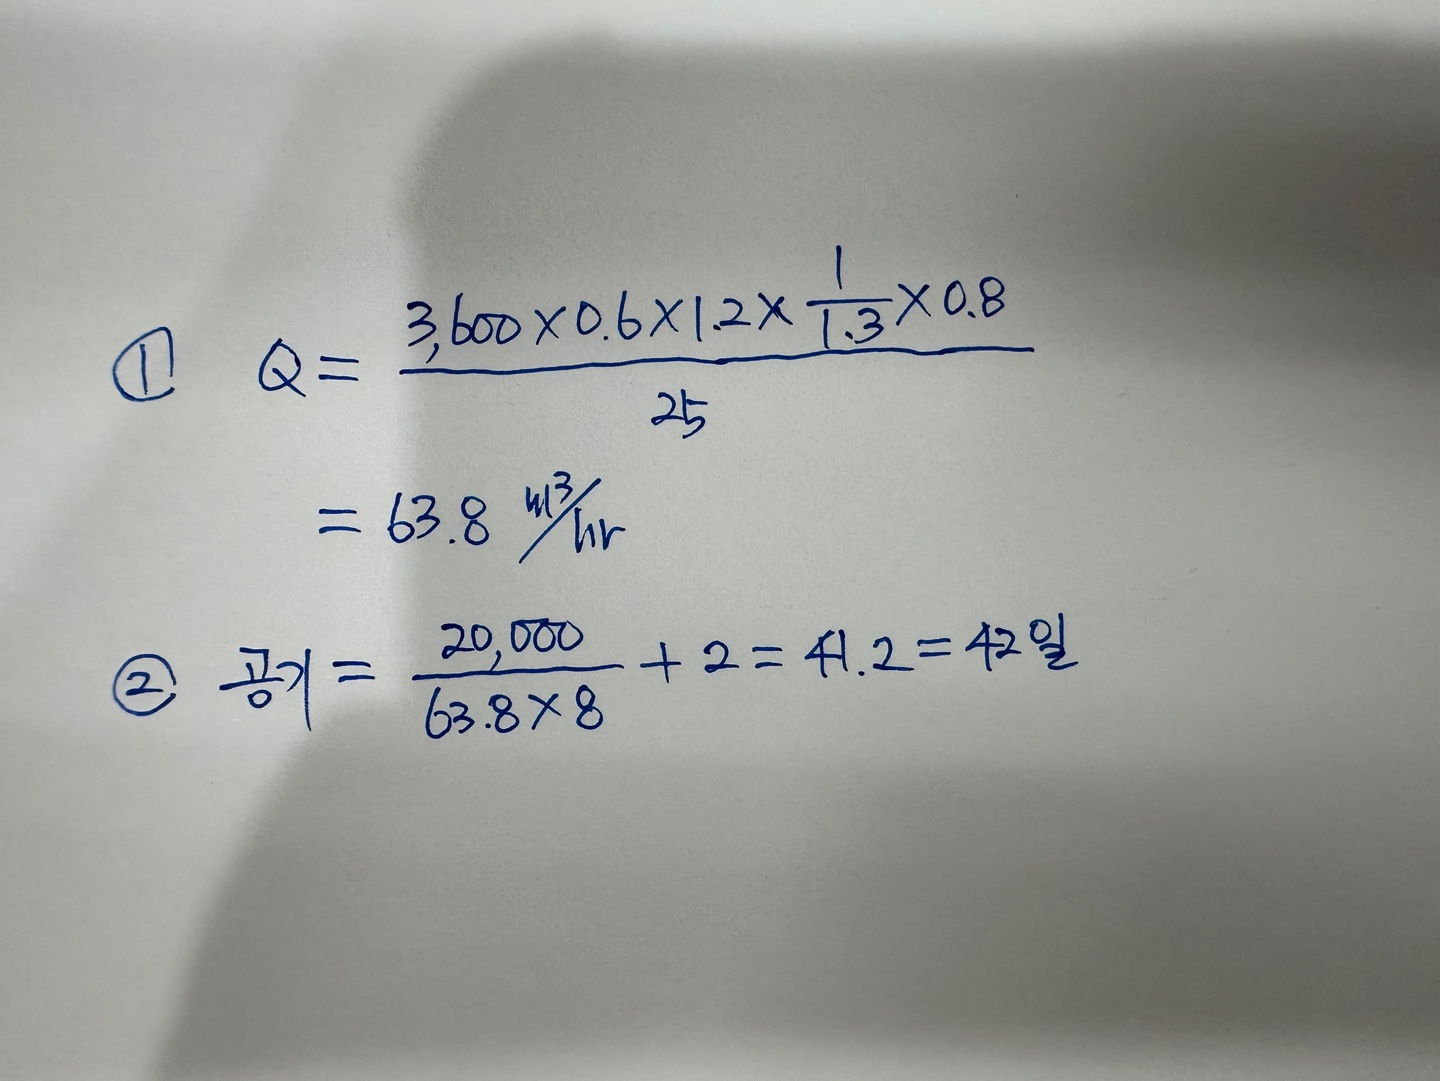 ① Q = 3,600×0.6×1.2×1/1.3×0.8 / 25
= 63.8 m³/hr
② 공기 = 20,000 / 63.8×8 + 2 = 41.2 = 42일